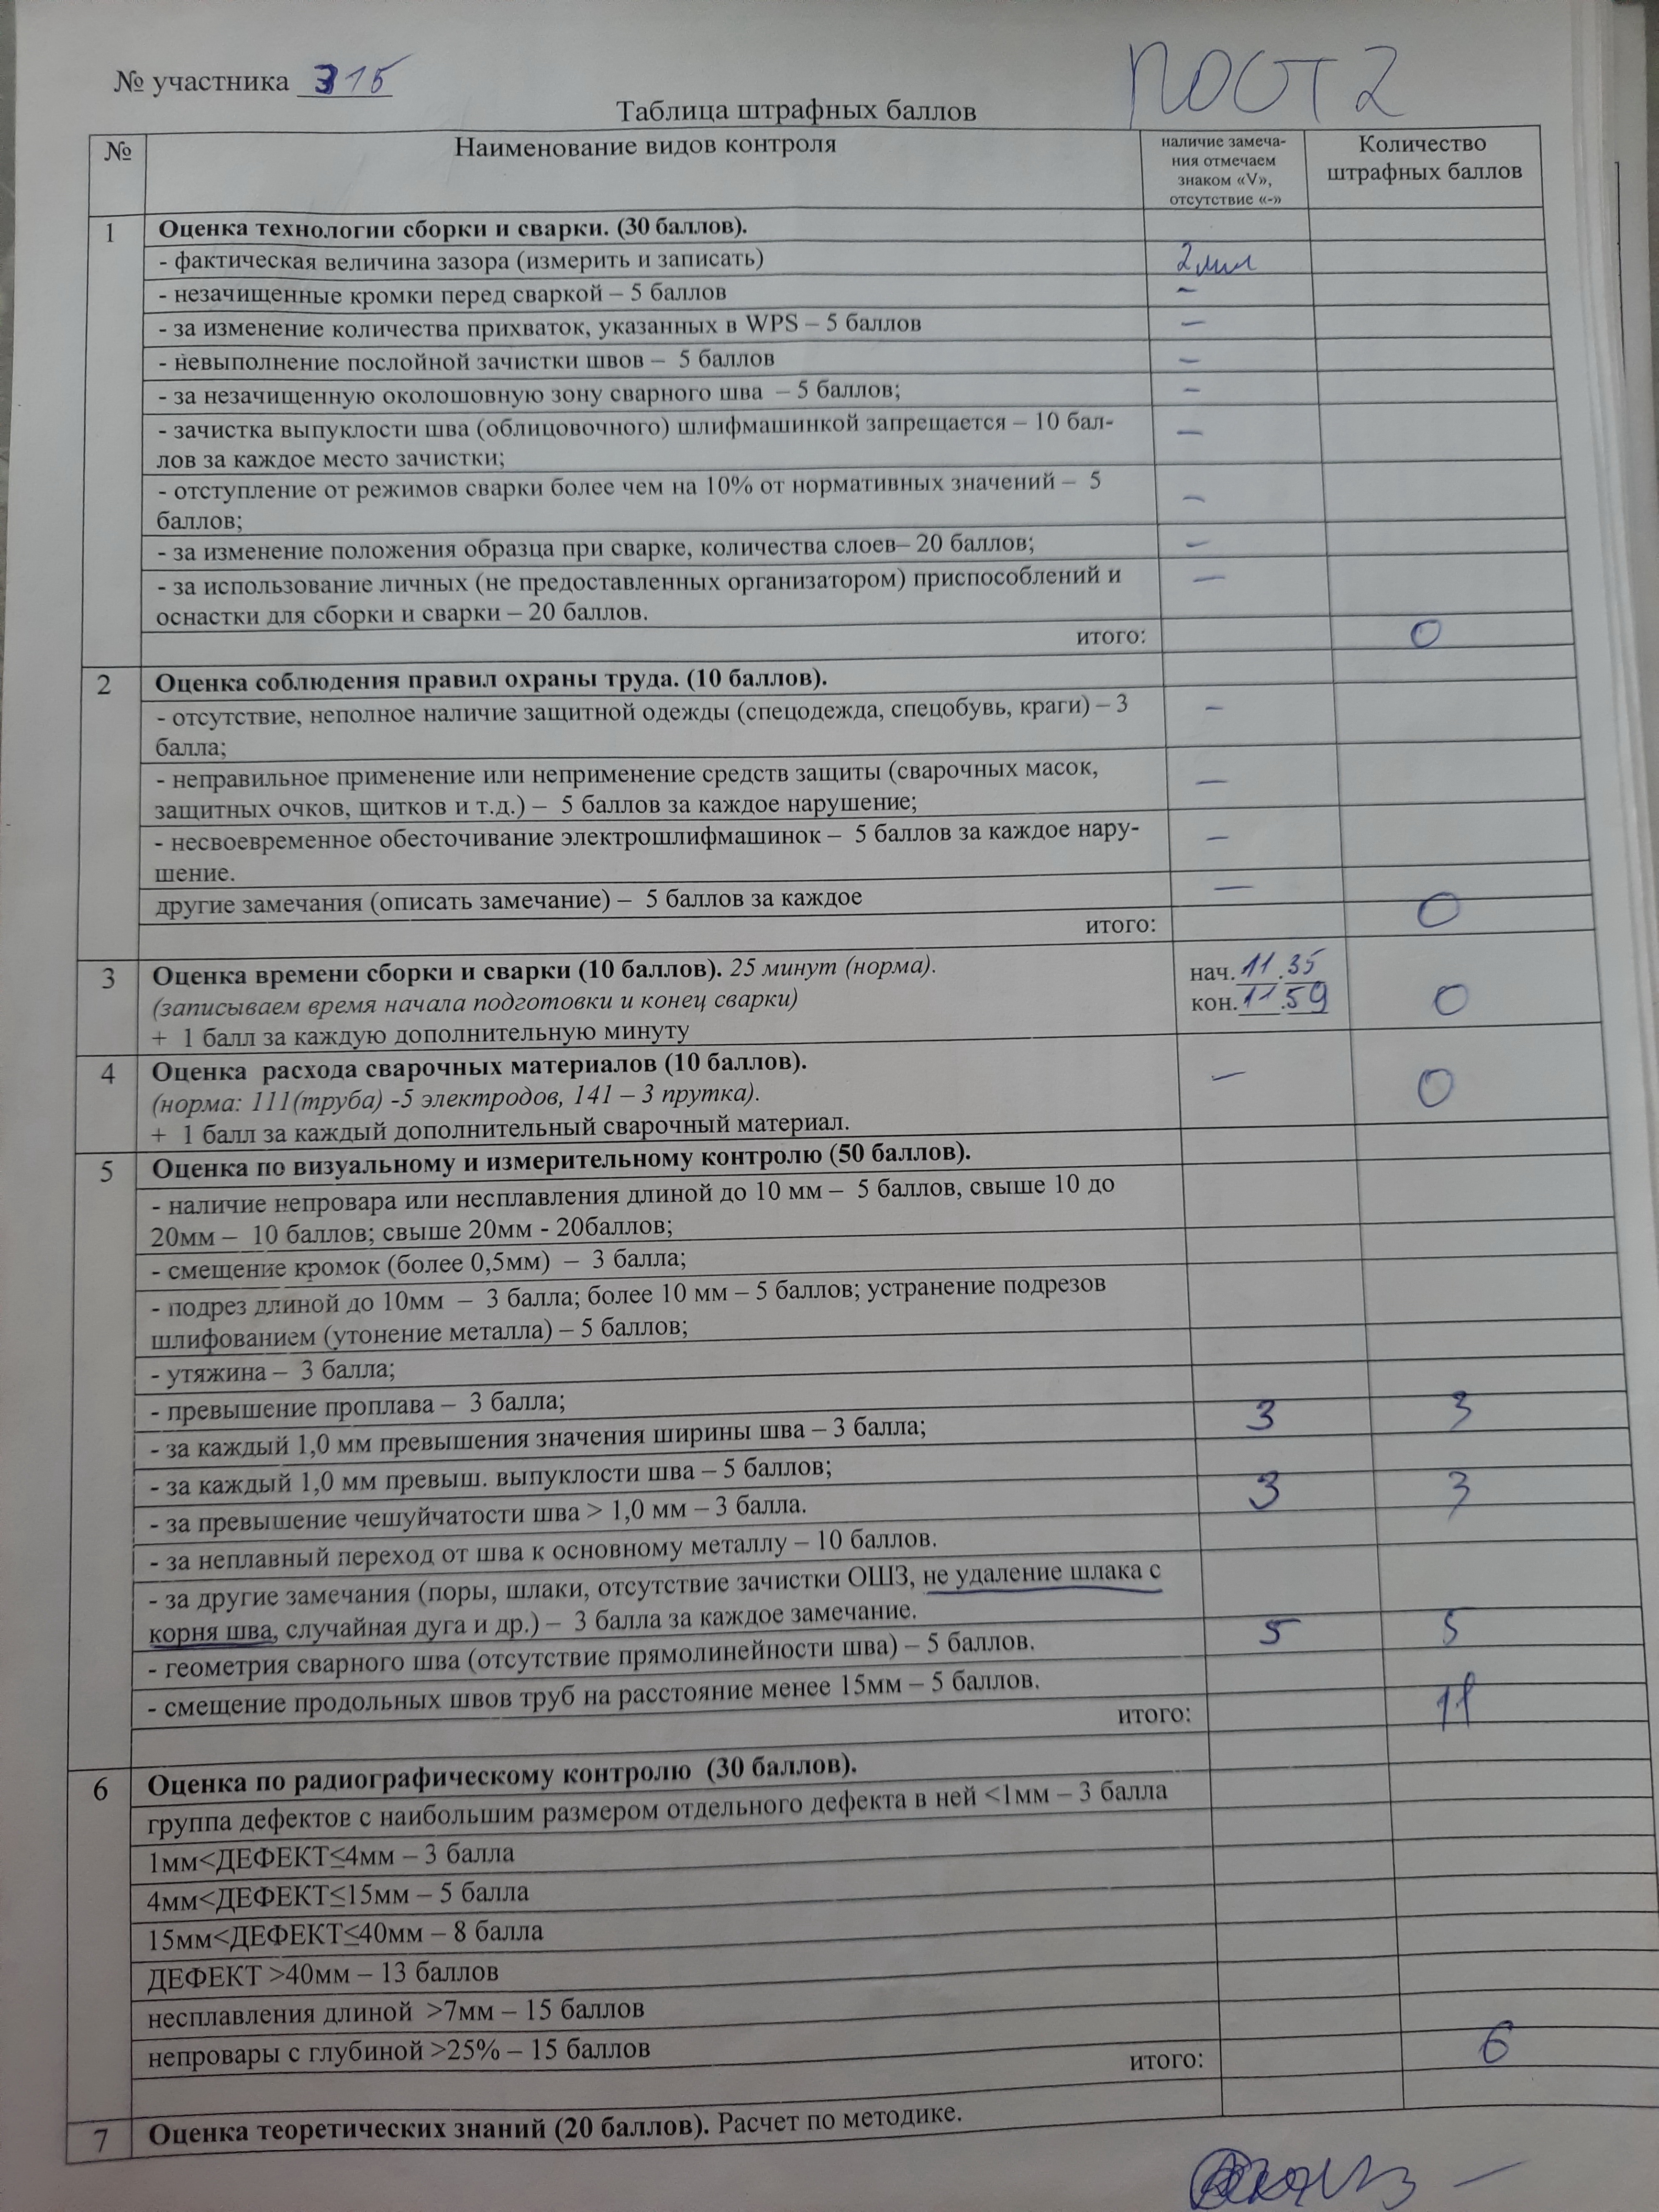 № участника 315
ПОСТ 2
Таблица штрафных баллов
№
Наименование видов контроля
наличие замеча-
ния отмечаем
знаком «V»,
отсутствие «-»
Количество
штрафных баллов
1
Оценка технологии сборки и сварки. (30 баллов).
- фактическая величина зазора (измерить и записать) 2мм
- незачищенные кромки перед сваркой – 5 баллов –
- за изменение количества прихваток, указанных в WPS – 5 баллов –
- невыполнение послойной зачистки швов – 5 баллов –
- за незачищенную околошовную зону сварного шва – 5 баллов; –
- зачистка выпуклости шва (облицовочного) шлифмашинкой запрещается – 10 бал- –
лов за каждое место зачистки;
- отступление от режимов сварки более чем на 10% от нормативных значений – 5 –
баллов;
- за изменение положения образца при сварке, количества слоев– 20 баллов; –
- за использование личных (не предоставленных организатором) приспособлений и –
оснастки для сборки и сварки – 20 баллов.
итого: 0
2
Оценка соблюдения правил охраны труда. (10 баллов).
- отсутствие, неполное наличие защитной одежды (спецодежда, спецобувь, краги) – 3 –
балла;
- неправильное применение или неприменение средств защиты (сварочных масок, –
защитных очков, щитков и т.д.) – 5 баллов за каждое нарушение;
- несвоевременное обесточивание электрошлифмашинок – 5 баллов за каждое нару- –
шение.
другие замечания (описать замечание) – 5 баллов за каждое –
итого: 0
3
Оценка времени сборки и сварки (10 баллов). 25 минут (норма). нач. 11.35
(записываем время начала подготовки и конец сварки) кон. 11.59 0
+ 1 балл за каждую дополнительную минуту
4
Оценка расхода сварочных материалов (10 баллов). –
(норма: 111(труба) -5 электродов, 141 – 3 прутка). 0
+ 1 балл за каждый дополнительный сварочный материал.
5
Оценка по визуальному и измерительному контролю (50 баллов).
- наличие непровара или несплавления длиной до 10 мм – 5 баллов, свыше 10 до
20мм – 10 баллов; свыше 20мм - 20баллов;
- смещение кромок (более 0,5мм) – 3 балла;
- подрез длиной до 10мм – 3 балла; более 10 мм – 5 баллов; устранение подрезов
шлифованием (утонение металла) – 5 баллов;
- утяжина – 3 балла;
- превышение проплава – 3 балла;
- за каждый 1,0 мм превышения значения ширины шва – 3 балла; 3 3
- за каждый 1,0 мм превыш. выпуклости шва – 5 баллов;
- за превышение чешуйчатости шва > 1,0 мм – 3 балла. 3 3
- за неплавный переход от шва к основному металлу – 10 баллов.
- за другие замечания (поры, шлаки, отсутствие зачистки ОШЗ, не удаление шлака с
корня шва, случайная дуга и др.) – 3 балла за каждое замечание.
- геометрия сварного шва (отсутствие прямолинейности шва) – 5 баллов. 5 5
- смещение продольных швов труб на расстояние менее 15мм – 5 баллов.
итого: 11
6
Оценка по радиографическому контролю (30 баллов).
группа дефектов с наибольшим размером отдельного дефекта в ней <1мм – 3 балла
1мм<ДЕФЕКТ≤4мм – 3 балла
4мм<ДЕФЕКТ≤15мм – 5 балла
15мм<ДЕФЕКТ≤40мм – 8 балла
ДЕФЕКТ >40мм – 13 баллов
несплавления длиной >7мм – 15 баллов
непровары с глубиной >25% – 15 баллов
итого: 6
7
Оценка теоретических знаний (20 баллов). Расчет по методике.